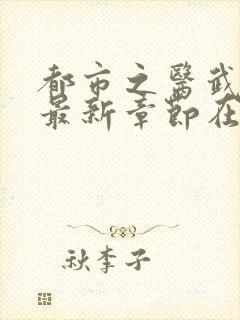 都市之醫武
最新章節在
秋李子